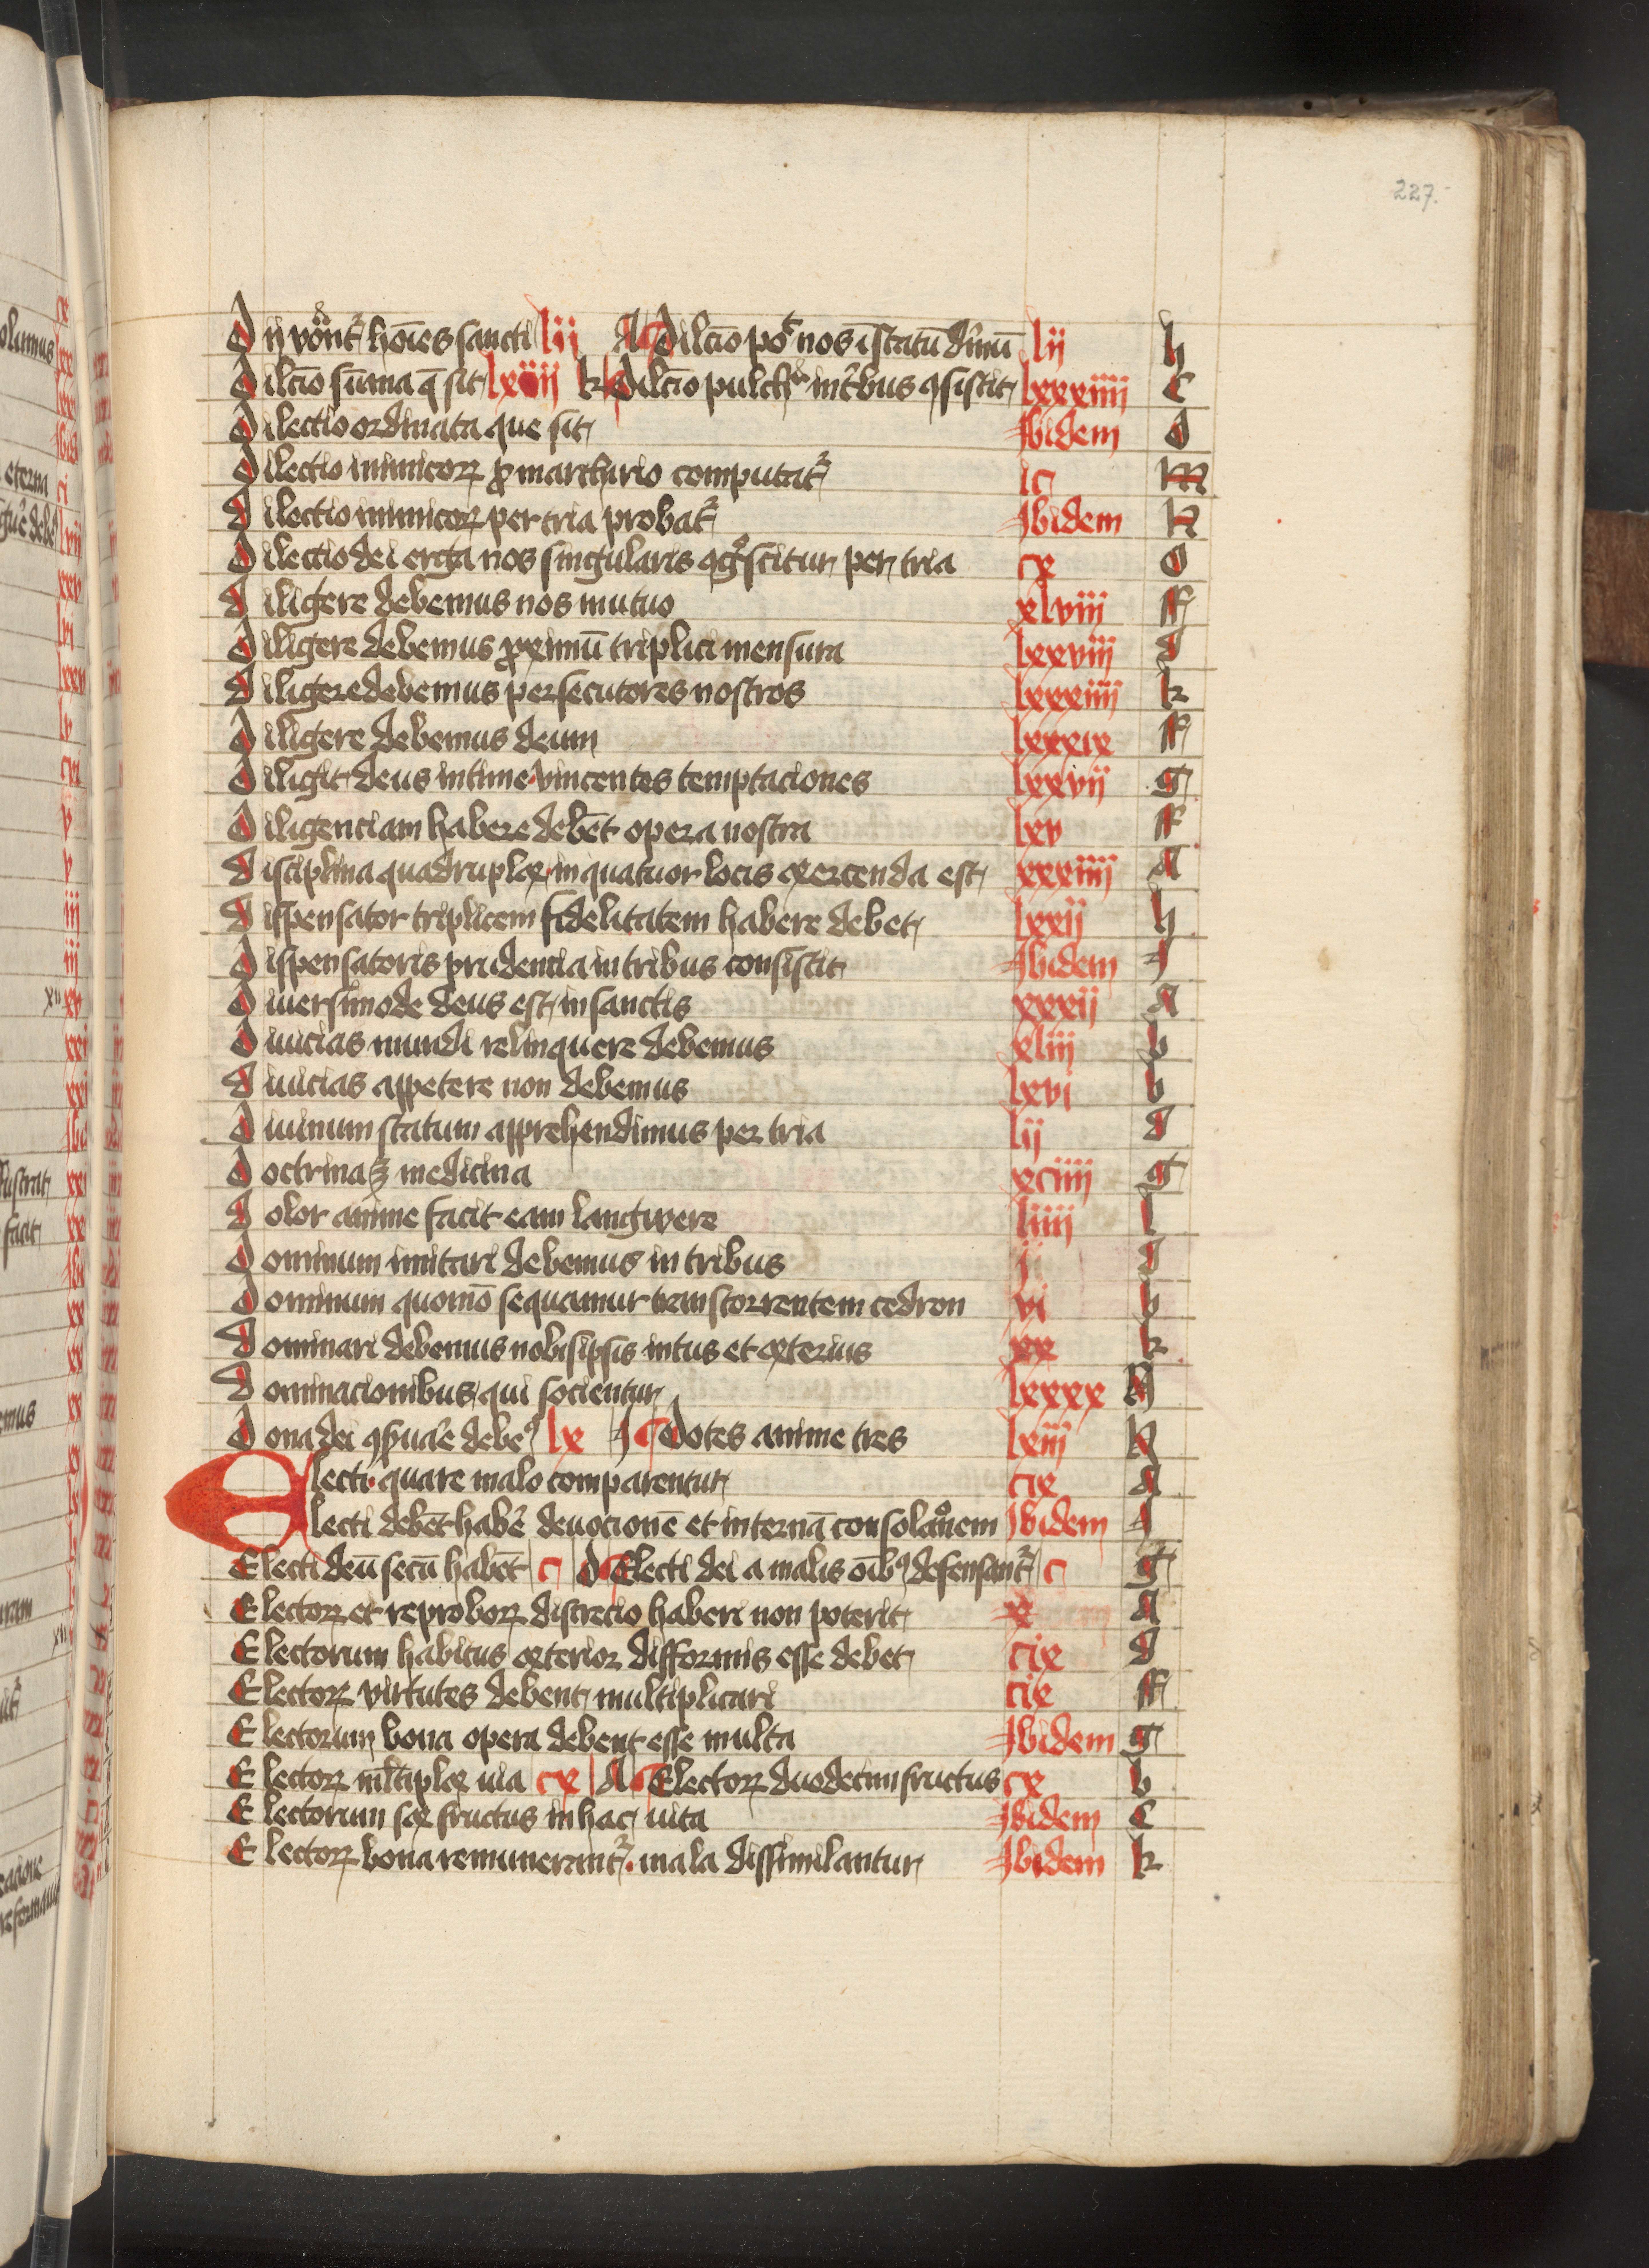 227.
Dij vocant᷑ hoīes sancti lij A Dilcīo po᷑t nos ī statū diuinū lij h
Dilcīo sūma q̄ sit lxiiij k Dilcīo pulch᷑ in t᷑bus ꝯsistit lxxxiiij c
Dilectio ordinata que sit Ibidem d
Dilectio inimicoꝝ ꝓ marthirio computat᷑ ic m
Dilectio inimicoꝝ per tria probat᷑ Ibidem n
Dilectio dei erga nos singularis ꝯgͦscitur per tria cx o
Diligere debemus nos mutuo xlviii ff
Diligere debemus ꝓximū triplici mensura lxxviij d
Diligere debemus persecutores nostros lxxxiiij k
Diligere debemus deum lxxxix ff
Diligit deus intime vincentes temptaciones lxxvij g
Diligenciam habere debēt opera nostra lxv ff
Disciplina quadruplex in quatuor locis exercenda est xxxiiij A
Dispensator triplicem fidelitatem habere debet lxxij h
Dispensatoris prudencia in tribus consistit Ibidem I
Diuersimode deus est in sanctis xxxij A
Diuicias mundi relinquere debemus xliij b
Diuicias appetere non debemus lxvi b
Diuinum statum apprehendimus per tria lij d
Doctrina medicina xciiij g
Dolor anime facit eam langwere liiij l
Dominum imitari debemus in tribus ij d
Dominum quomō sequamur trans torrentem cedron vi b
Dominari debemus nobisipsis intus et exterius xx k
Dominacionibus qui socientur lxxxx N
Dona dei ꝯseruar̄e debeꝰ lx I Dotes anime tres lxiij N
Electi quare malo comparentur cix A
Electi debēt habēr deuocionē et internā consolacōnem Ibidem I
Electi deū secū habēt c d Electi dei a malis oībꝰ defensant᷑ c g
Electoꝝ et reproboꝝ discrecio haberi non poterit x A
Electorum habitus exterior difformis esse debet cix d
Electoꝝ virtutes debent multiplicari cix ff
Electorum bona opera debent esse multa Ibidem g
Electoꝝ ml̄tiplex uia cx A Electoꝝ duodecim fructus cx b
Electorum sex fructus in hac uita Ibidem c
Electoꝝ bona remunerant᷑ mala dissimilantur Ibidem k